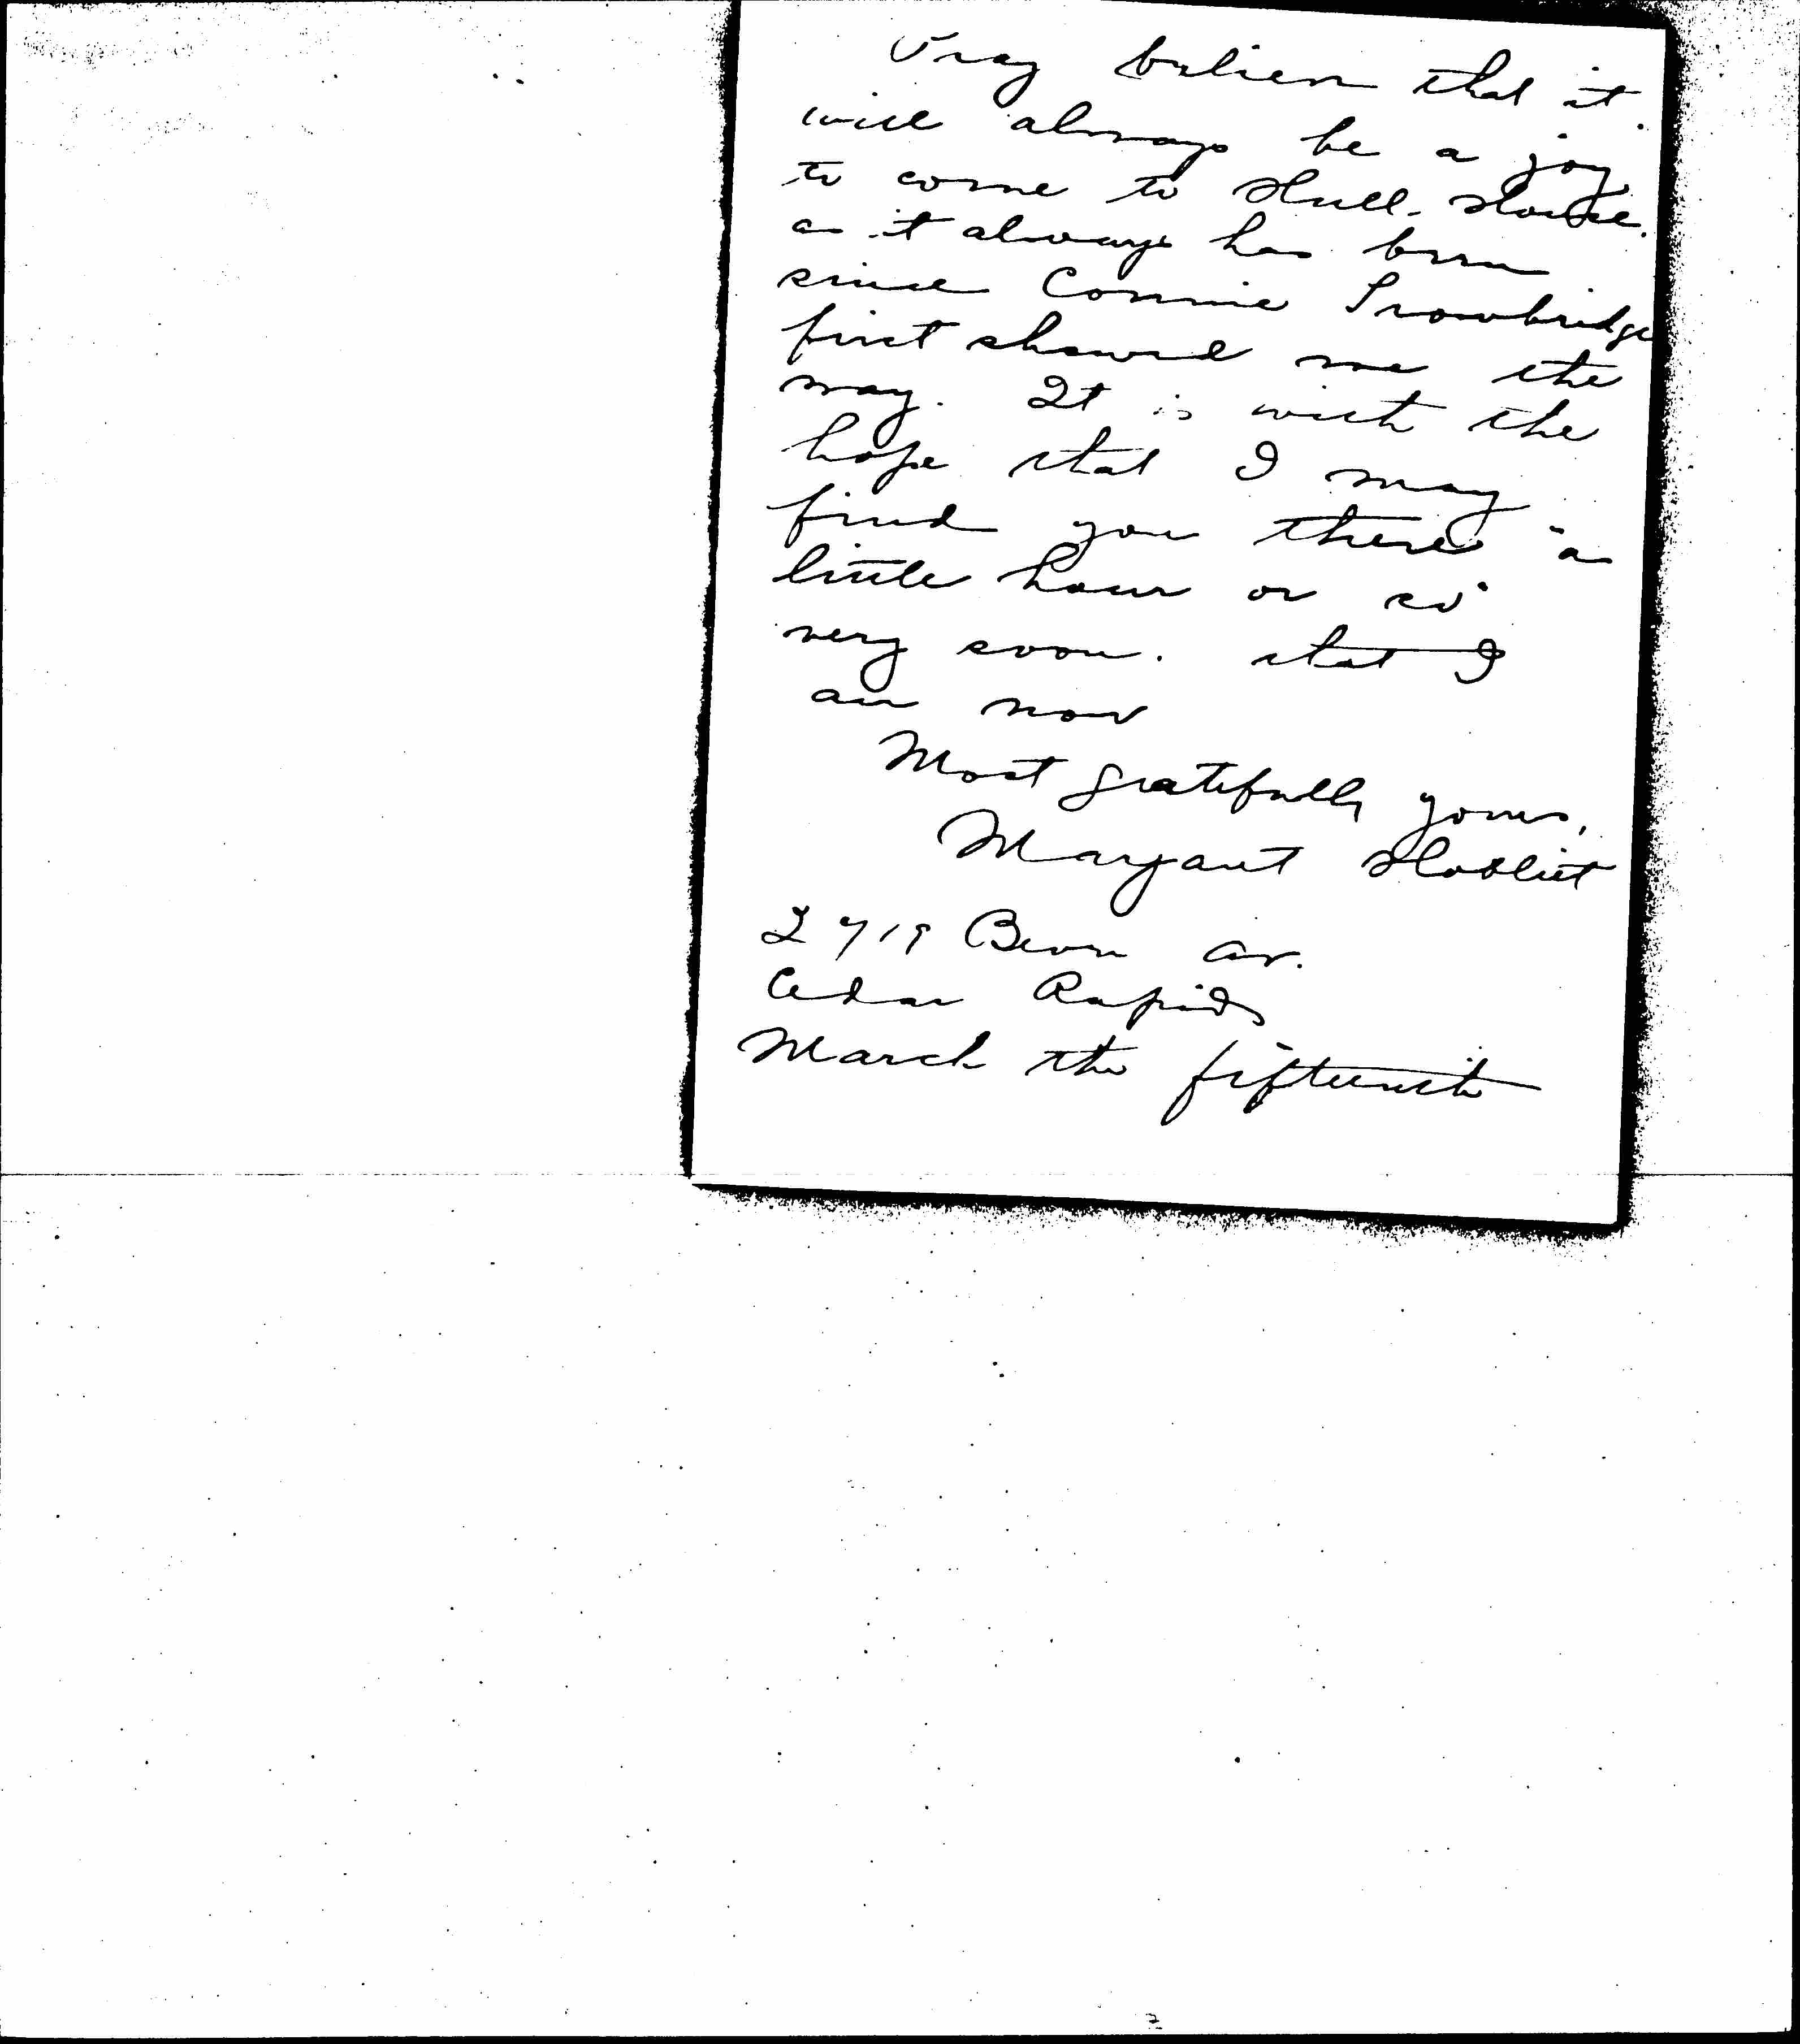 Pray believe that it
will always be a joy
to come to Hull-House.
as it always has been
since Connie Trowbridge
first showed me the
way. It is with the
hope that I may
find you there "a
little hour or so"
very soon. that I
am now
Most gratefully yours,
Margaret
2719 Bever Av.
Cedar Rapids
March the fifteenth